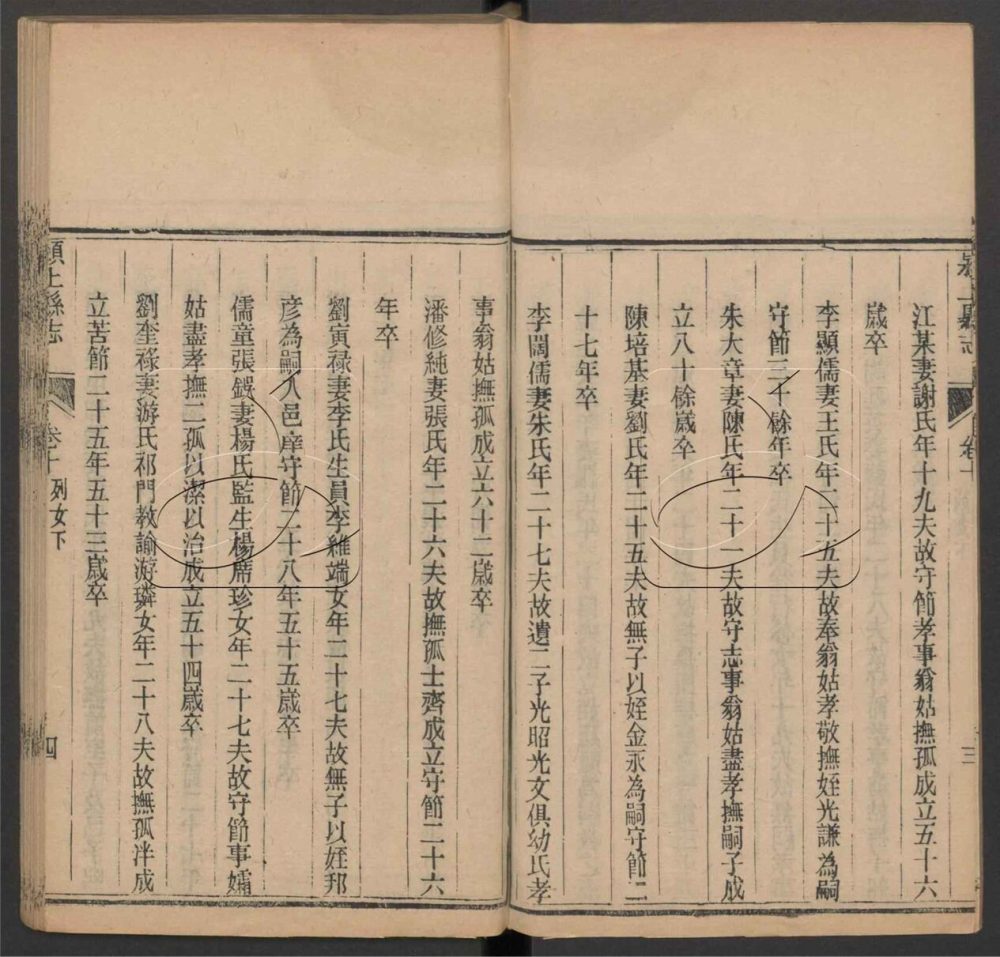 江某妻謝氏年十九夫故守節孝事翁姑撫孤成立五十六
歲卒
李顯儒妻王氏年二十五夫故奉翁姑孝敬撫姪光謙為嗣
守節三十餘年卒
朱大章妻陳氏年二十一夫故守志事翁姑盡孝撫嗣子成
立八十餘歲卒
陳培基妻劉氏年二十五夫故無子以姪金永為嗣守節二
十七年卒
李闊儒妻朱氏年二十七夫故遺二子光昭光文俱幼氏孝
三
事翁姑撫孤成立六十二歲卒
潘修純妻張氏年二十六夫故撫孤士齊成立守節二十六
年卒
劉寅祿妻李氏生員李維端女年二十七夫故無子以姪邦
彦為嗣入邑庠守節二十八年五十五歲卒
儒童張鎡妻楊氏監生楊席珍女年二十七夫故守節事孀
姑盡孝撫二孤以潔以治成立五十四歲卒
劉奎祿妻游氏祁門教諭游璘女年二十八夫故撫孤泮成
立苦節二十五年五十三歲卒
潁上縣志
卷十
列女下
四